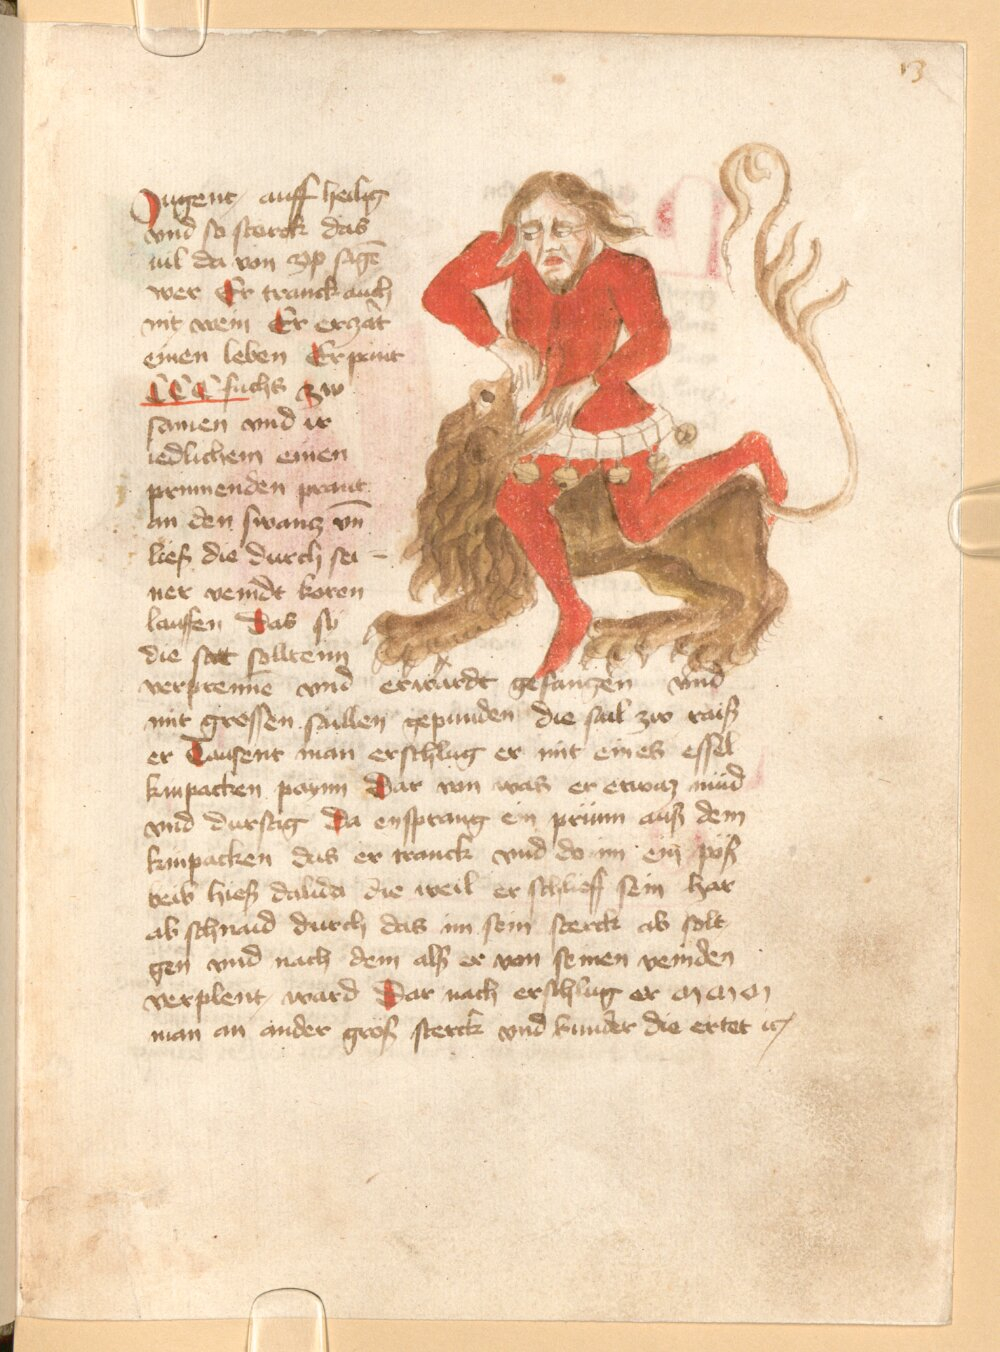 13
Jugent auff heilig
vnd so starck das
vil da von zw sagē
wer Er tranck auch
nit wein Er erzāt
einen leben Er pint
CCC fuchs zw
samen vnd ir
iedlichem einen
prinnenden prant
an den swancz vn̄
ließ die durch sei-
ner veindt koren
lauffen Das sy
die sat solltenn
verprenne vnd erwardt gefangen vnd
mit grossen saillen gepunden die sail zw raiß
er Tausent man erschlug er mit eines essel
kinpacken paynn Dar von was er etwaz müd
vnd durstig Da ensprang ein prünn auß dem
kinpacken das er tranck vnd do im ein pöß
weib hieß dalida die weil er schlieff sein har
ab schnaid durch das im sein sterck ab solt
gen vnd nach dem alß er von seinen veinden
verplent ward Dar nach erschlug er MMM
man an ander groß sterck vnd kinder die ertet ic